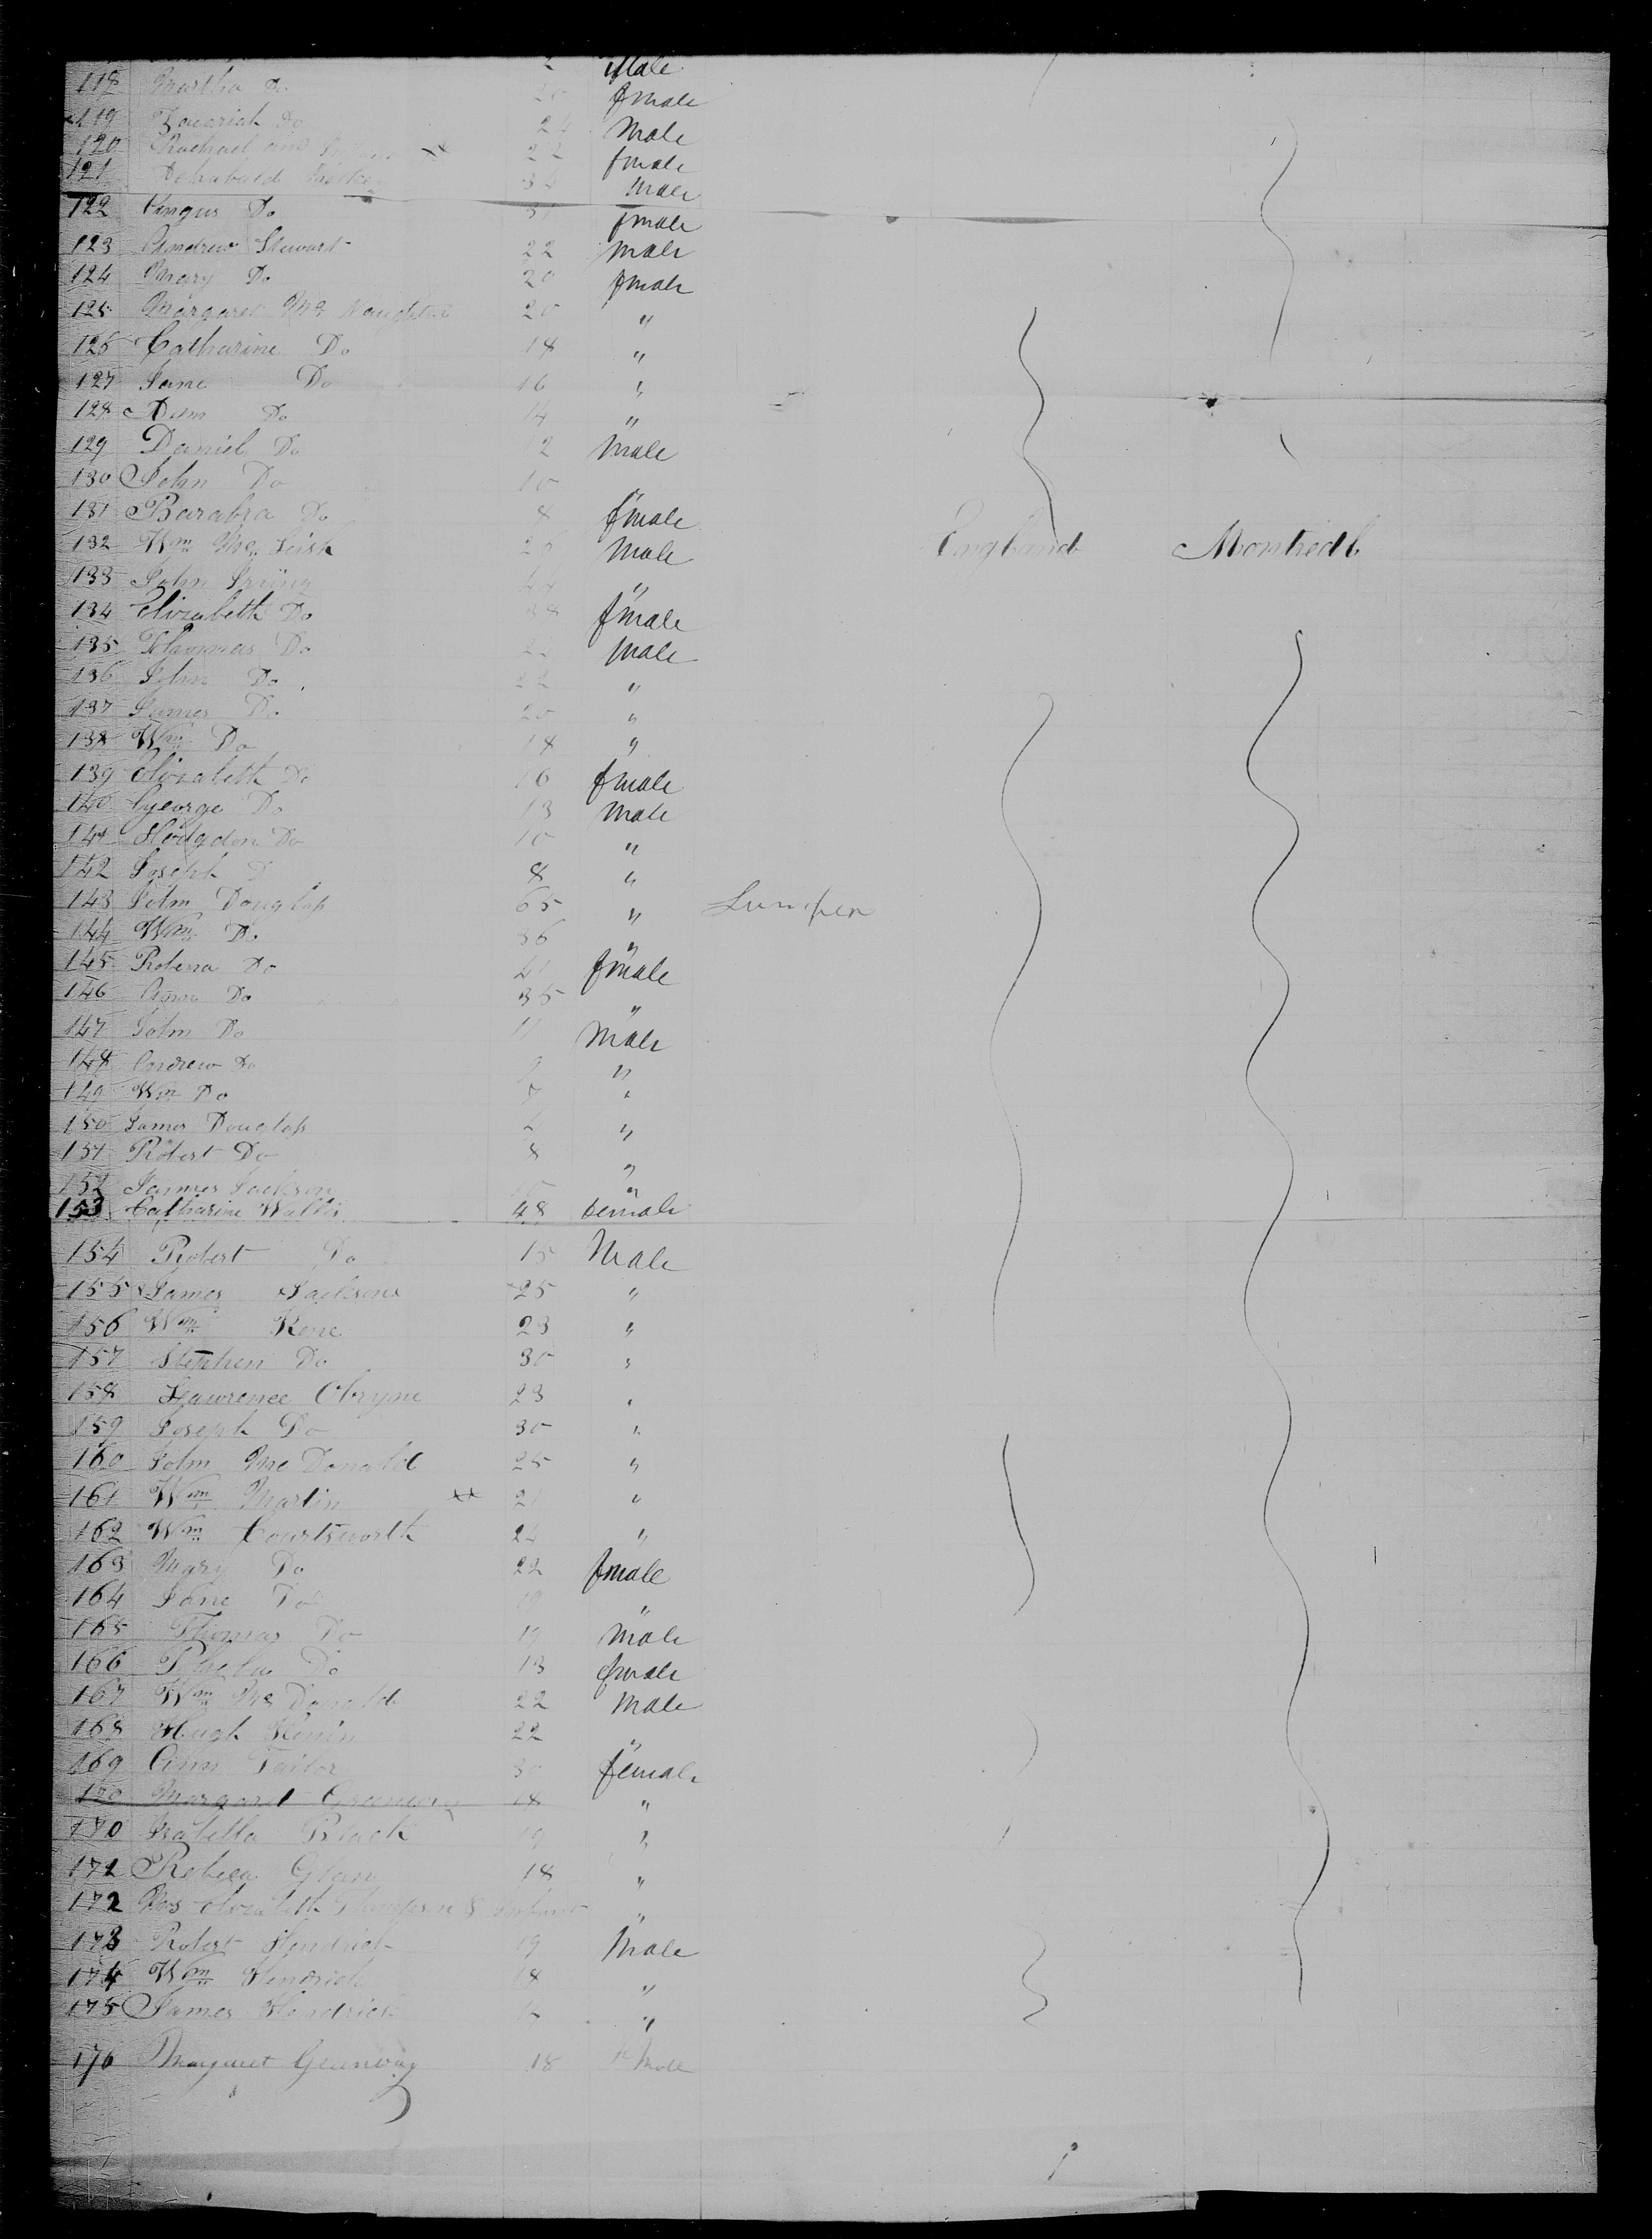 Male
118 Martha Do 20 fmale
119 Zacariah Do 24 Male
120 Rachael and 22 fmale
121 Male
122 Angus Do fmale
123 Andrew Stewart 22 male
124 Mary Do 20 fmale
125 Margaret Mc Naughton 20 "
126 Catharine Do 18 "
127 Jane Do 16 "
128 Ann Do 14 "
129 Daniel Do 12 male
130 John Do 10 "
131 Barabra Do 8 fmale
132 Wm Mc Leish 26 Male England Montreal
133 John "
134 Elizabeth Do fmale
135 Thommas Do male
136 John Do 22 "
137 James Do 20 "
138 Wm Do 18 "
139 Elizabeth Do 16 fmale
140 George Do 13 male
141 Hodgdon Do 10 "
142 Joseph D 8 "
143 John Douglass 65 "
144 Wm Do 36 "
145 Robena Do fmale
146 Ann Do 35 "
147 John Do 11 Male
148 Andrew Do "
149 Wm Do 7 "
150 James Douglass "
151 Robert Do 8 "
152 James Jackson "
153 Catharine Wallis 48 female
154 Robert Do 15 Male
155 James Jackson 25 "
156 Wm Kene 23 "
157 Stephen Do 30 "
158 Lawrence Obryne 23 "
159 Joseph Do 30 "
160 John Mc Donald 25 "
161 Wm Martin xx 21 "
162 Wm Courtsworth 24 "
163 Mary Do 22 fmale
164 Jane Do 19 "
165 Thomas Do 17 male
166 Do 13 fmale
167 Wm Mc Donald 22 Male
168 Hugh 22 "
169 Ann Tailor 30 female
170 Margaret Greenway 18 "
170 Isabella Black 19 "
171 Rebeca 18 "
172 Mrs Elizabeth Thompson & Infant "
173 Robert Hendrick 19 Male
174 Wm Hendrick 18 "
175 James Hendrick "
176 Margaret Greenway 18 male